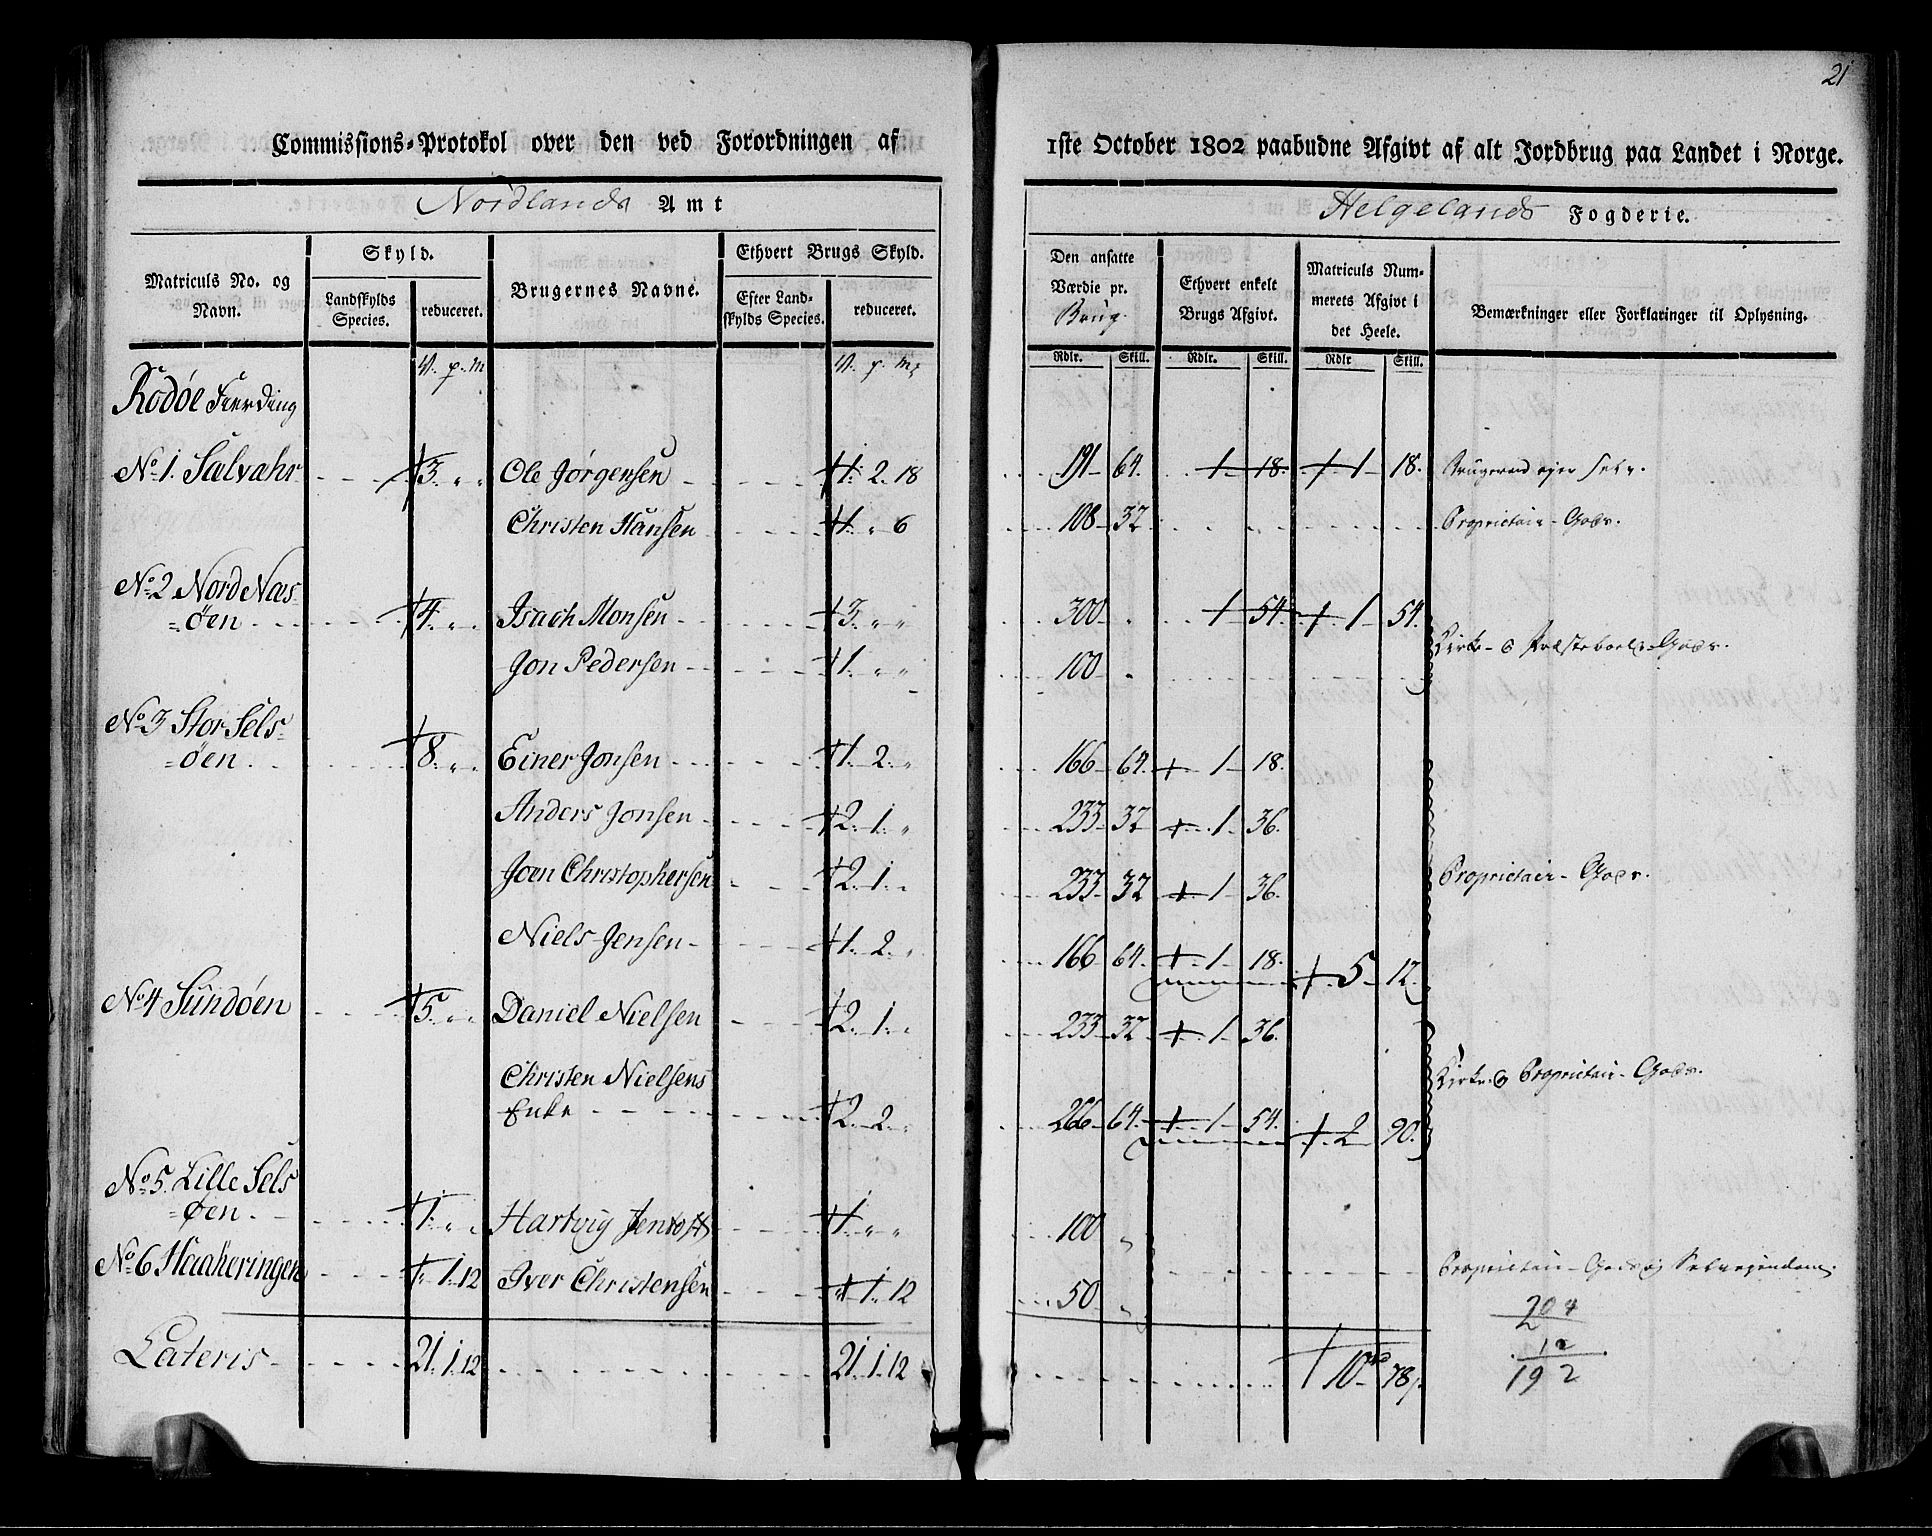 21
Commissions-Protokol over den ved Forordningen af 1ste October 1802 paabudne Afgivt af alt Jordbrug paa Landet i Norge.
Nordlands Amt
Helgelands Fogderie.
Matriculs No. og Navn.
Skyld.
Landskylds Species.
reduceret.
Brugernes Navne.
Ethvert Brugs Skyld.
Efter Landskylds Species.
reduceret.
Den ansatte Værdie pr. Brug.
Ethvert enkelt Brugs Afgivt.
Matriculs Nummerets Afgivt i det Heele.
Bemærkninger eller Forklaringer til Oplysning.
V. p. m V. p. m Rdlr. Skill. Rdlr. Skill. Rdlr Skill.
Rödöe Fierding
No 1. Sælvahr 3. " " Ole Jörgensen 1. 2. 18 191 64. 1 18. 1 18. Brugerens ejer selv.
Christen Hansen 1. " 6 108 32 Proprietair-Gods.
No 2 Nord Næs-
öen 4. " " Isach Monsen 3. " " 300 " 1 54. 1 54.
Kirke- & Præsteboels-Gods.
Jon Pedersen 1. " " 100 "
No 3 Stor Sels-
öen 8. " " Einer Jonsen 1. 2. " 166 64. 1 18.
Anders Jonsen 2. 1. " 233 32 1 36.
Joen Christophersen 2. 1. " 233 32 1 36. Proprietair-Gods.
Niels Jensen 1. 2. " 166 64. 1 18. 5 12.
No 4 Sundöen 5. " " Daniel Nielsen 2. 1. " 233 32 1 36.
Christen Nielsens Kirke & Proprietair-Gods.
Enke 2. 2. " 266 64. 1 54. 2 90.
No 5. Lille Sels
öen 1. " " Hartvig Jentoft 1. " " 100 "
No 6 Haaheringen " 1. 12 Iver Christensen " 1. 12 50 " Proprietair-Gods og Selveyendom.
204
12
192
Lateris 21. 1. 12 21. 1. 12 10 78